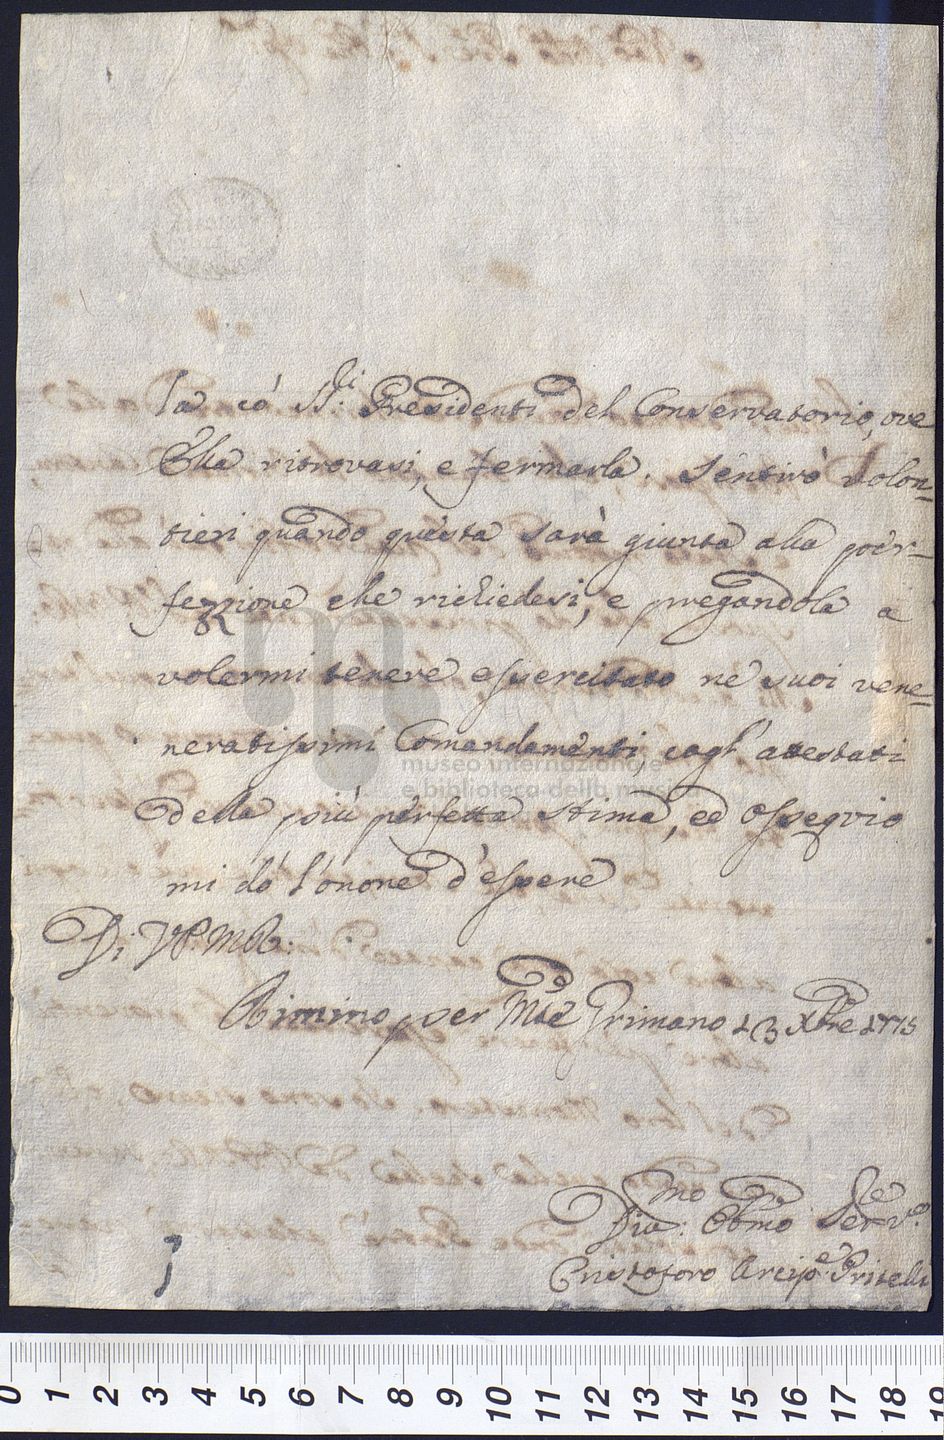 la có SS.ri Presidenti del Conservatorio, ove
Ella ritrovasi, e fermarla. Sentirò volon=
tieri quando questa sarà giunta alla per=
fezzione che richiedesi, e pregandola a
volermi tenere essercitato né suoi vene=
neratissimi Comandamenti, cogl' attestati
della più perfetta stima, ed ossequio
mi dó l'onore d'essere
Di VP.MR:
Rimino per M.te Grimano 13 Xbre 1775
Div:mo Obmo: Serv.re
Cristoforo Arcip.e Pritelli
museo internazionale
e biblioteca della musica
0 1 2 3 4 5 6 7 8 9 10 11 12 13 14 15 16 17 18 19